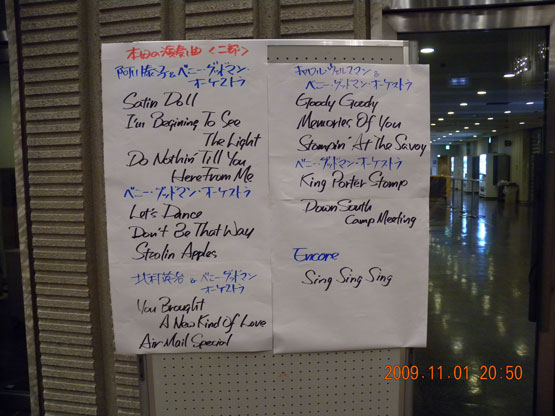 本日の演奏曲<二部>
阿川泰子&ベニー・グッドマン・
オーケストラ
Satin Doll
I'm Begining To See
The Light
Do Nothin' Till You
Herefrom Me
ベニー・グッドマン・オーケストラ
Let's Dance
Don't Be That Way
Stealin Apples
北村英治&ベニー・グッドマン
オーケストラ
You Brought
A New Kind Of Love
Air Mail Special
キャロル・ウェルスマン&
ベニー・グッドマン・オーケストラ
Goody Goody
Memories Of You
Stompin' At The Savoy
ベニー・グッドマン・オーケストラ
King Porter Stomp
Down South
Camp Meeting
Encore
Sing Sing Sing
2009.11.01 20:50